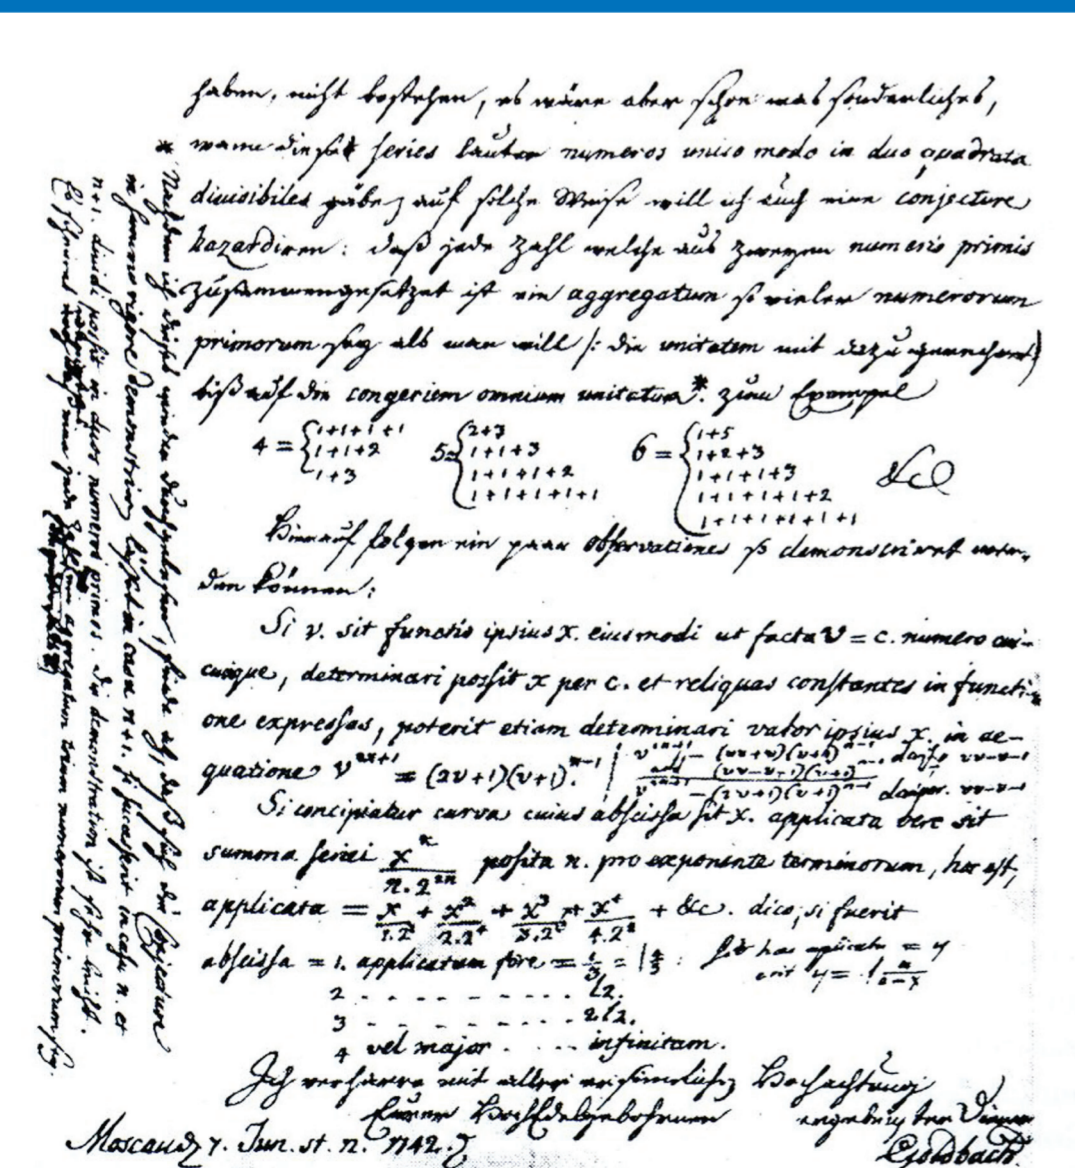 haben, nicht bestehen, es wäre aber schon was sonderliches,
wann diese series lauter numeros unico modo in duo quadrata
divisibiles gäbe, auf solche Weise will ich auch eine conjecture
hazardiren: daß jede Zahl welche aus zweyen numeris primis
zusammengesetzet ist ein aggregatum so vieler numerorum
primorum sey als man will /: die unitatem mit dazu gerechnet)
biß auf die congeriem omnium unitatum*. zum Exempel
4 = { 1+1+1+1
1+1+2
1+3
5 = { 2+3
1+1+3
1+1+1+2
1+1+1+1+1
6 = { 1+5
1+2+3
1+1+1+3
1+1+1+1+2
1+1+1+1+1+1
&c
Hierauf folgen ein paar observationes so demonstriret wer-
den können:
Si v. sit functio ipsius x. eiusmodi ut facta v = c. numero cui-
cunque, determinari possit x per c. et reliquas constantes in functi-
one expressas, poterit etiam determinari valor ipsius x. in ae-
quatione v^{2n+1} = (2v+1)(v+1)^{n-1}
Si concipiatur curva cuius abscissa sit x. applicata vero sit
summa seriei x^n / n.2^{2n} posita n. pro exponente terminorum, hoc est,
applicata = x/1.2^2 + x^2/2.2^4 + x^3/3.2^6 + x^4/4.2^8 + &c. dico, si fuerit
abscissa = 1. applicatam fore = l 4/3.
2 . . . . . . . . . . l2.
3 . . . . . . . . . . 2l2.
4 vel major . . . . infinitam.
Ich verharre mit aller ersinnlichen Hochachtung
Eurer HochEdelgebohrnen ergebenster Diener
Moscau d. 7. Jun. st. n. 1742. Goldbach
* Nachdem ich dieses wieder durchgelesen, finde ich, daß sich die conjecture
in summo rigore demonstriren lässet in casu n+1. si successerit in casu n. et
n+1. dividi possit in duos numeros primos. Die demonstration ist sehr leicht.
Es scheinet wenigstens, daß eine jede Zahl ein aggregatum trium numerorum primorum sey.